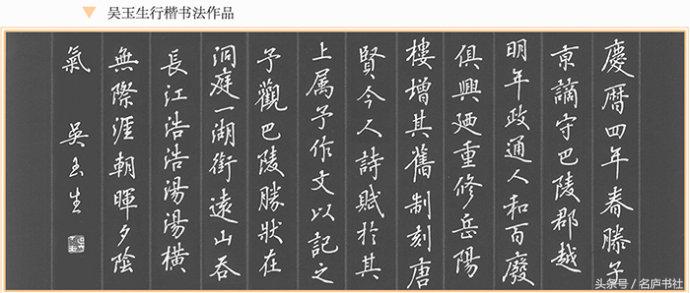 吴玉生行楷书法作品
慶暦四年春滕子
京謫守巴陵郡越
明年政通人和百廢
俱興廼重修岳陽
樓增其舊制刻唐
賢今人詩賦於其
上属予作文以記之
予觀巴陵勝狀在
洞庭一湖銜遠山吞
長江浩浩湯湯橫
無際涯朝暉夕陰
氣 吴玉生
头条号 / 名庐书社